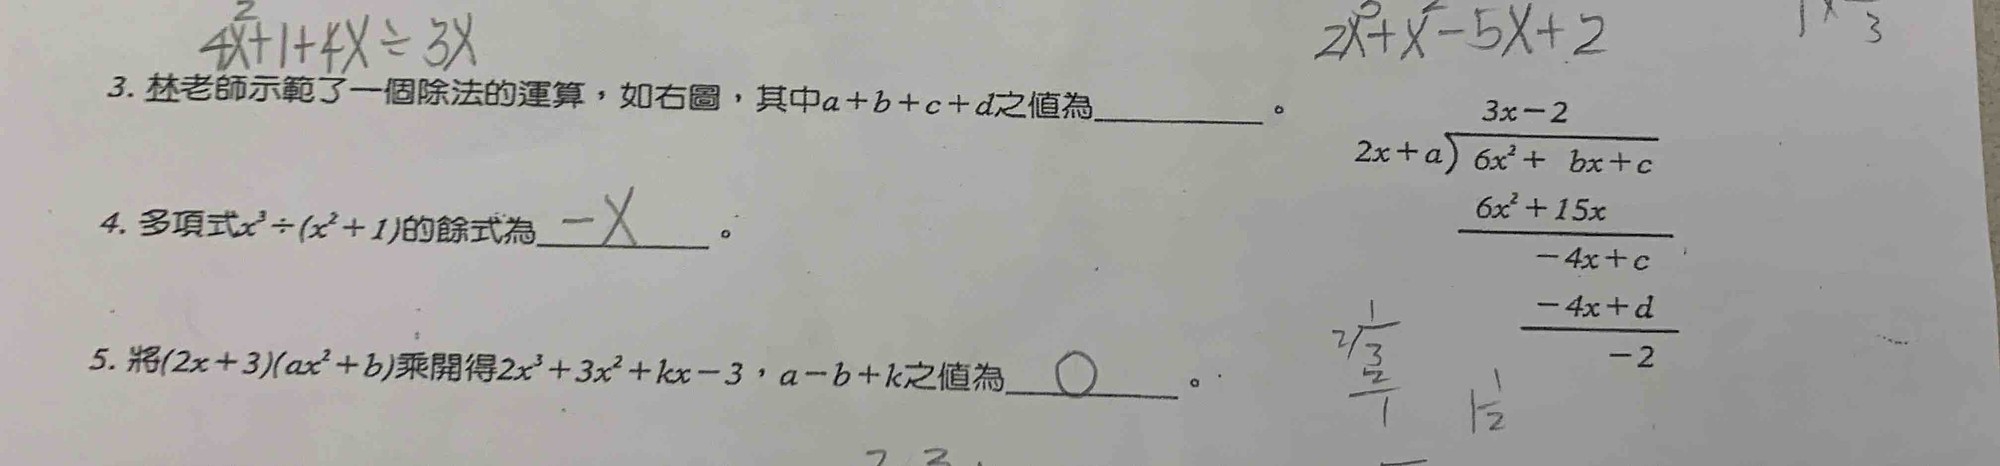 4x²+1+4x÷3x
2x³+x²-5x+2
3. 林老師示範了一個除法的運算，如右圖，其中a+b+c+d之值為________。
3x-2
2x+a) 6x²+ bx+c
6x²+15x
-4x+c
-4x+d
-2
4. 多項式x³÷(x²+1)的餘式為 -x 。
5. 將(2x+3)(ax²+b)乘開得2x³+3x²+kx-3，a-b+k之值為 0 。
1
2/3
2
1
1 1/2